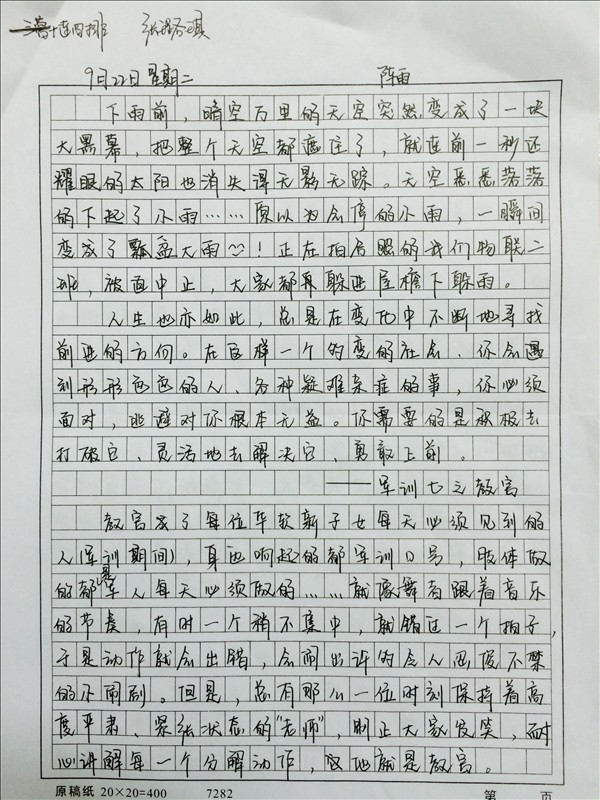 十连四排 张
9月22日 星期二 阵雨
下雨前，晴空万里的天空突然变成了一块
大黑幕，把整个天空都遮住了，就连前一秒还
耀眼的太阳也消失得无影无踪。天空悉悉落落
的下起了小雨……原以为会停的小雨，一瞬间
变成了瓢盆大雨~~！正在拍合照的我们物联二
班，被迫中止，大家都再躲进屋檐下躲雨。
人生也亦如此，总是在变化中不断地寻找
前进的方向。在这样一个的变的社会、你会遇
到形形色色的人、各种疑难杂症的事，你必须
面对，逃避对你根本无益。你需要的是积极去
打破它、灵活地去解决它、勇敢上前。
——军训七之教官
教官成了每位华软新子女每天必须见到的
人（军训期间），身边响起的都军训口号，肢体做
的都是军人每天必须做的……就像舞者跟着音乐
的节奏，有时一个稍不集中，就错过一个拍子，
于是动作就会出错，会闹出许的令人忍俊不禁
的小闹剧。但是，总有那么一位时刻保持着高
度严肃、紧张状态的“老师”，制止大家发笑，而耐
心讲解每一个分解动作，这他就是教官。
原稿纸 20×20=400 7282 第 页